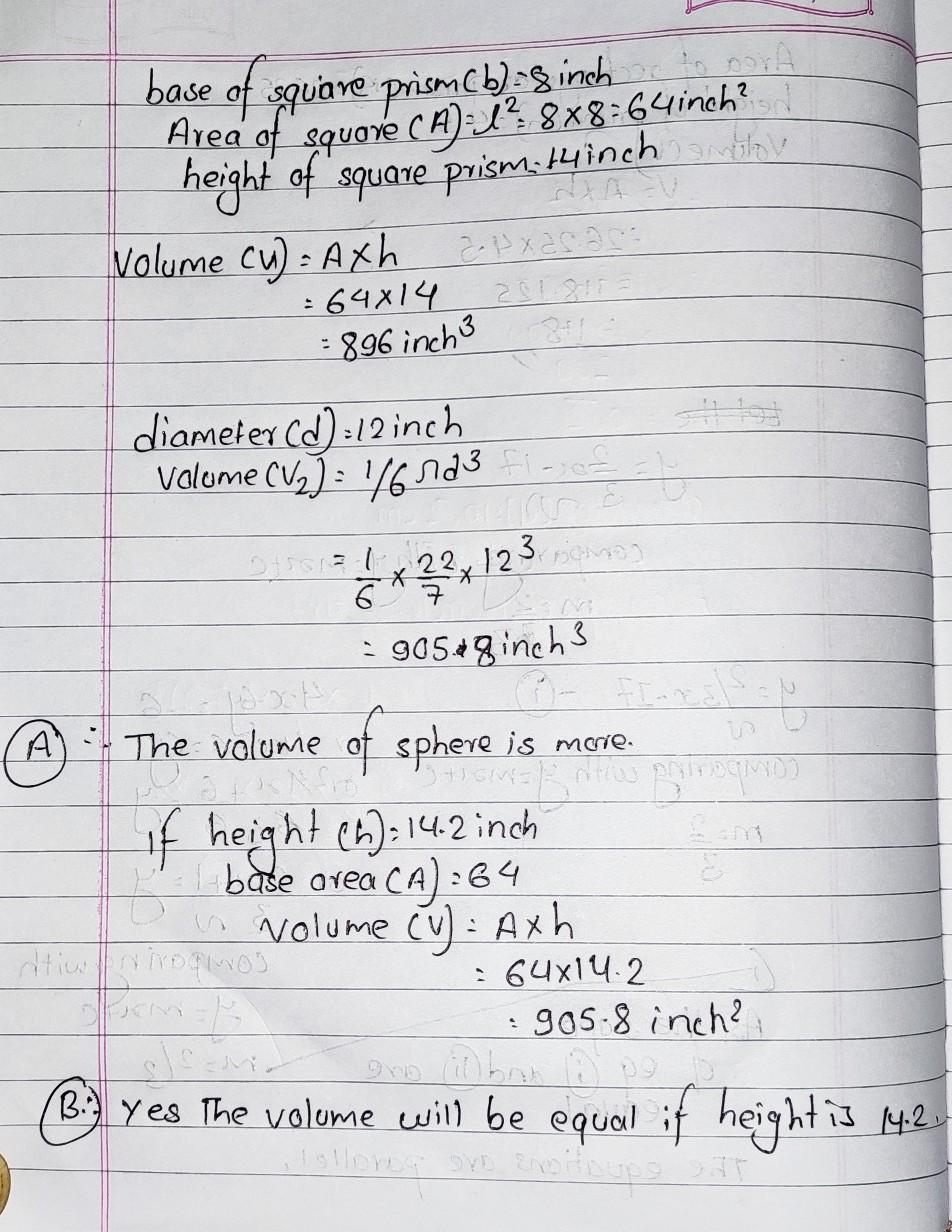 base of square prism(b)=8 inch
Area of square (A)=l²= 8×8=64inch²
height of square prism=14inch
Volume (v) = A×h
= 64×14
= 896 inch³
diameter(d)=12 inch
Volume(V₂) = 1/6 πd³
= 1/6 × 22/7 × 12³
= 905.8 inch³
(A) ∴ The volume of sphere is more.
if height (h)=14.2 inch
base area (A) = 64
Volume (V) = A×h
= 64×14.2
= 905.8 inch²
(B.∴) Yes The volume will be equal if height is 14.2.